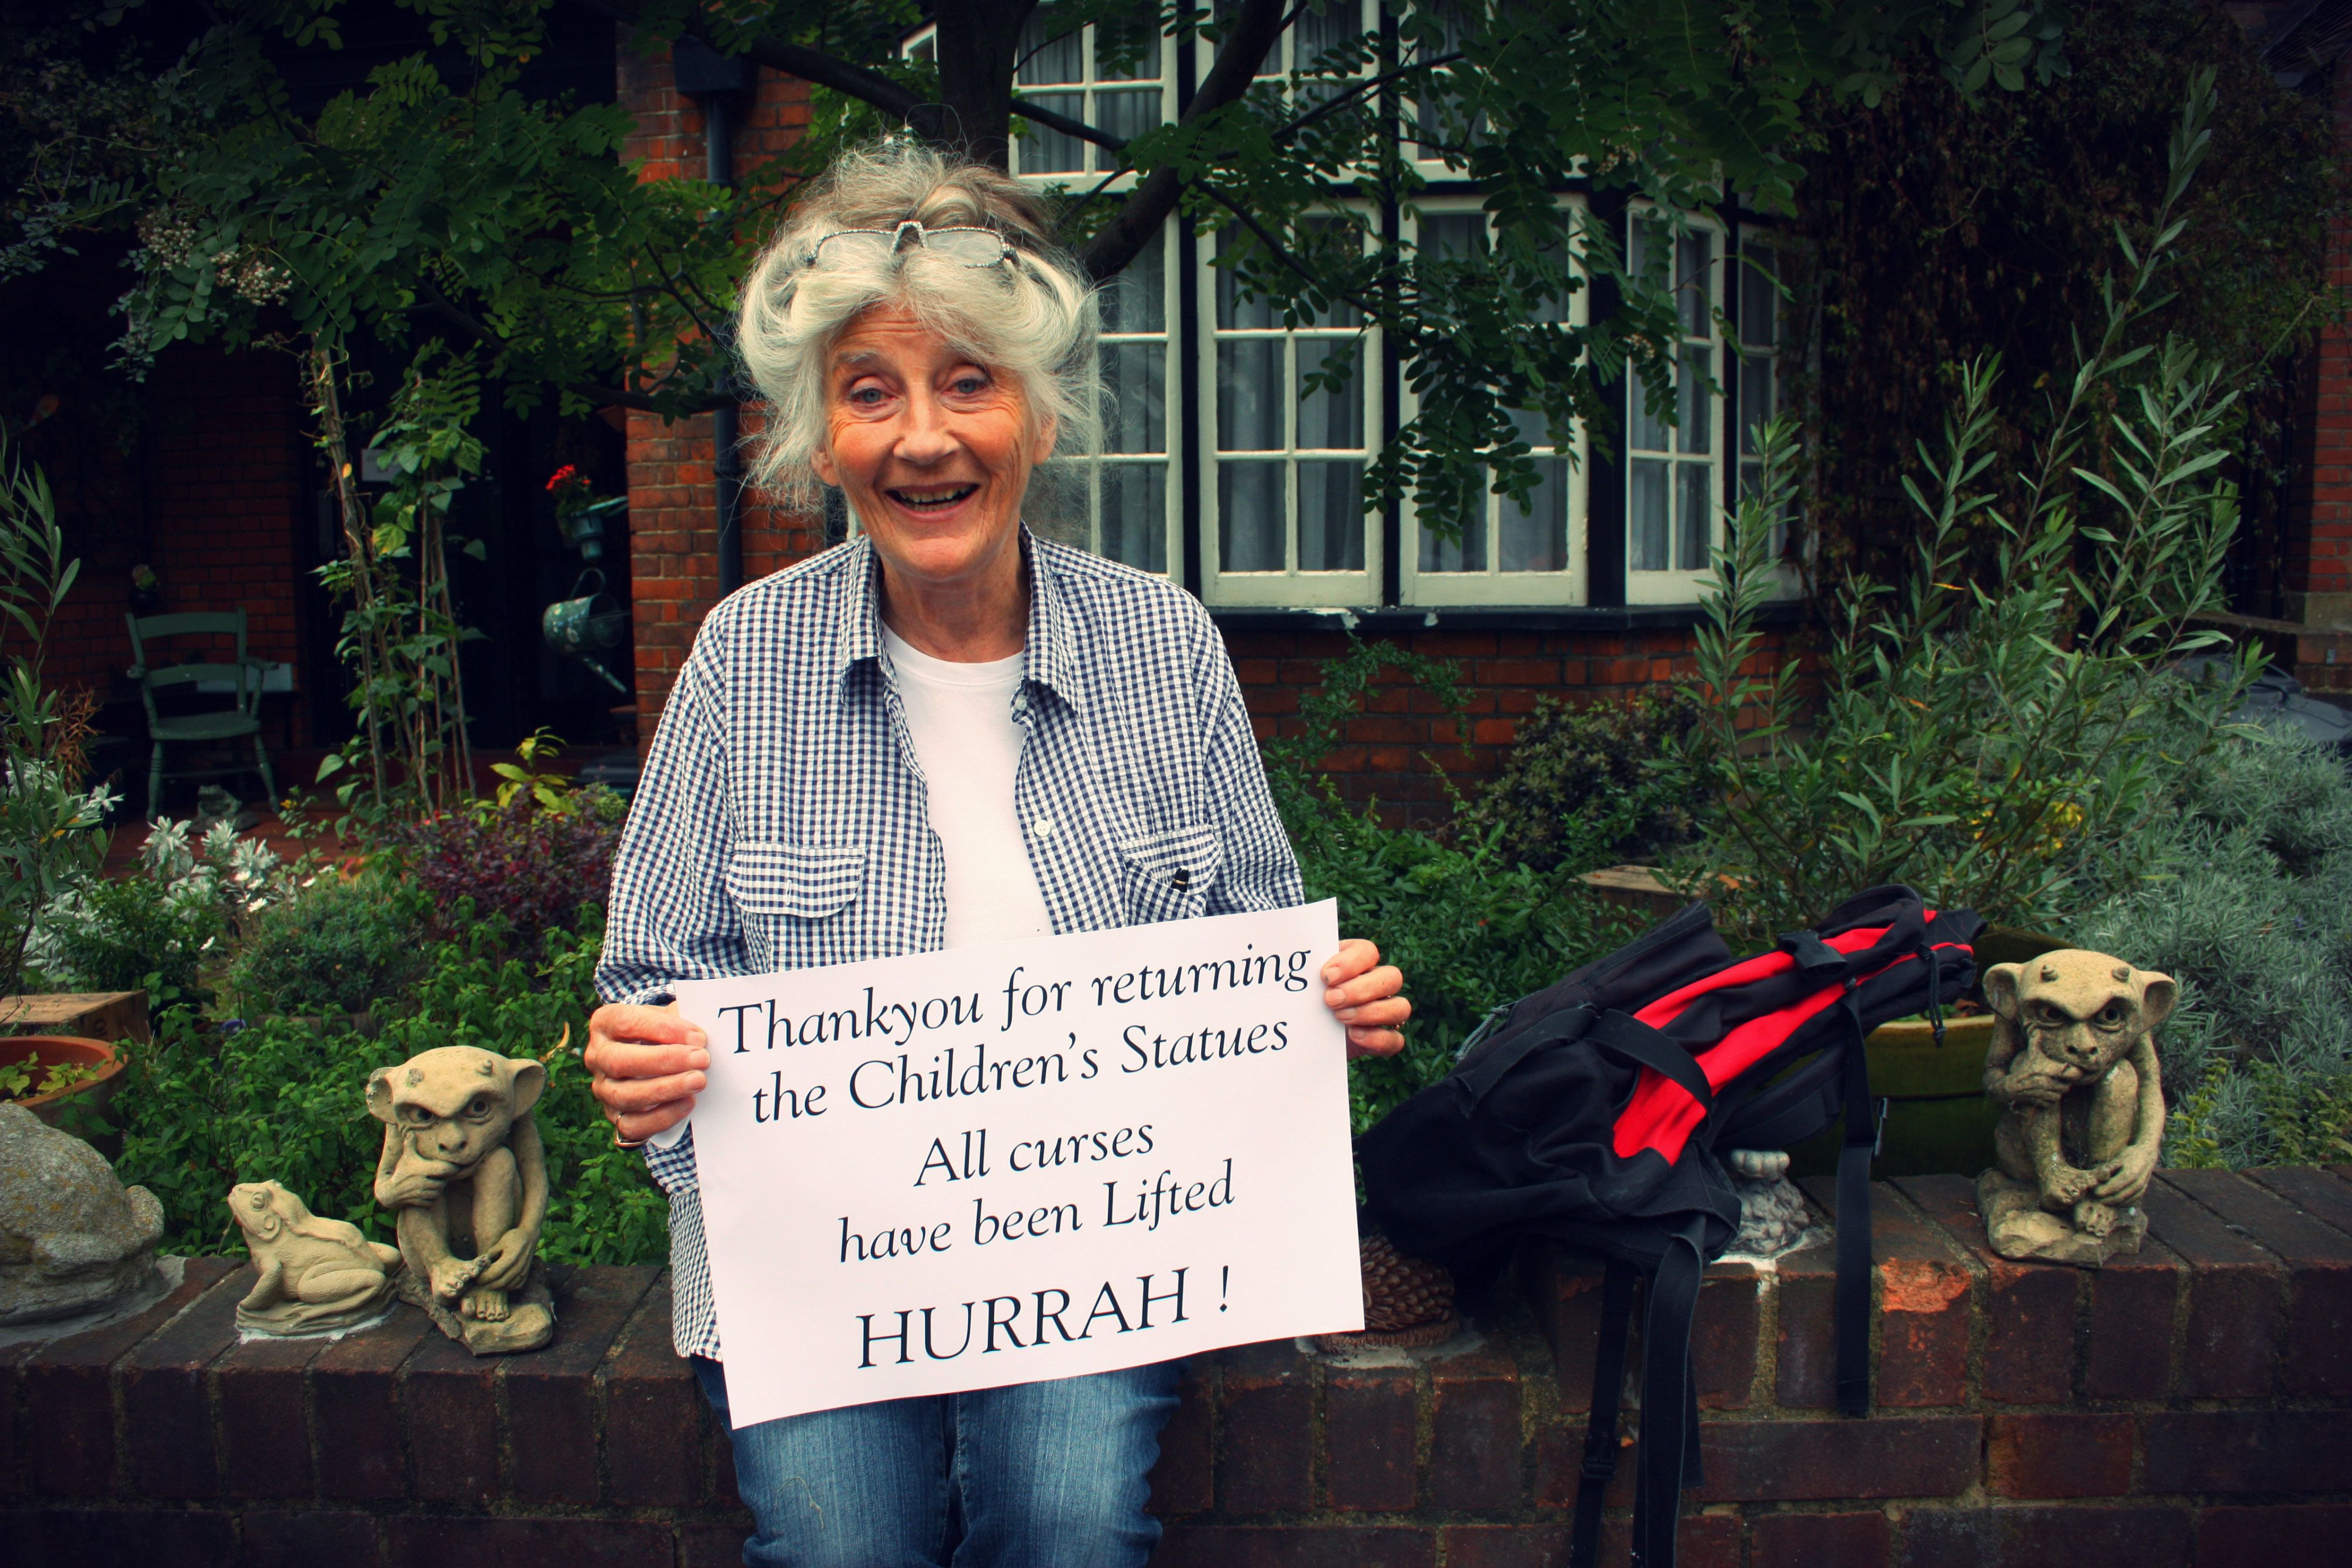 Thankyou for returning
the Children's Statues
All curses
have been Lifted
HURRAH !